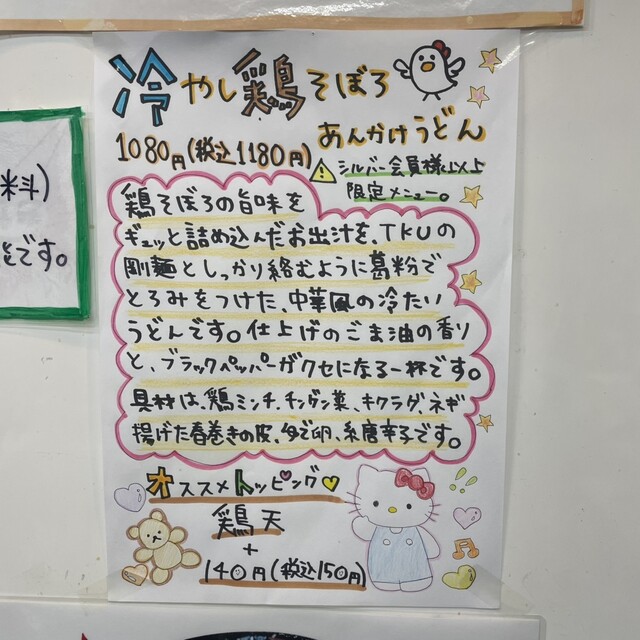 冷やし鶏そぼろ
あんかけうどん
1080円(税込1180円)
シルバー会員様以上
限定メニュー。
鶏そぼろの旨味を
ギュッと詰め込んだお出汁を、TKUの
剛麺としっかり絡むように葛粉で
とろみをつけた、中華風の冷たい
うどんです。仕上げのごま油の香り
と、ブラックペッパーがクセになる一杯です。
具材は、鶏ミンチ、チンゲン菜、キクラゲ、ネギ
揚げた春巻きの皮、ゆで卵、糸唐辛子です。
オススメトッピング
鶏天
+
140円(税込150円)
料)
です。